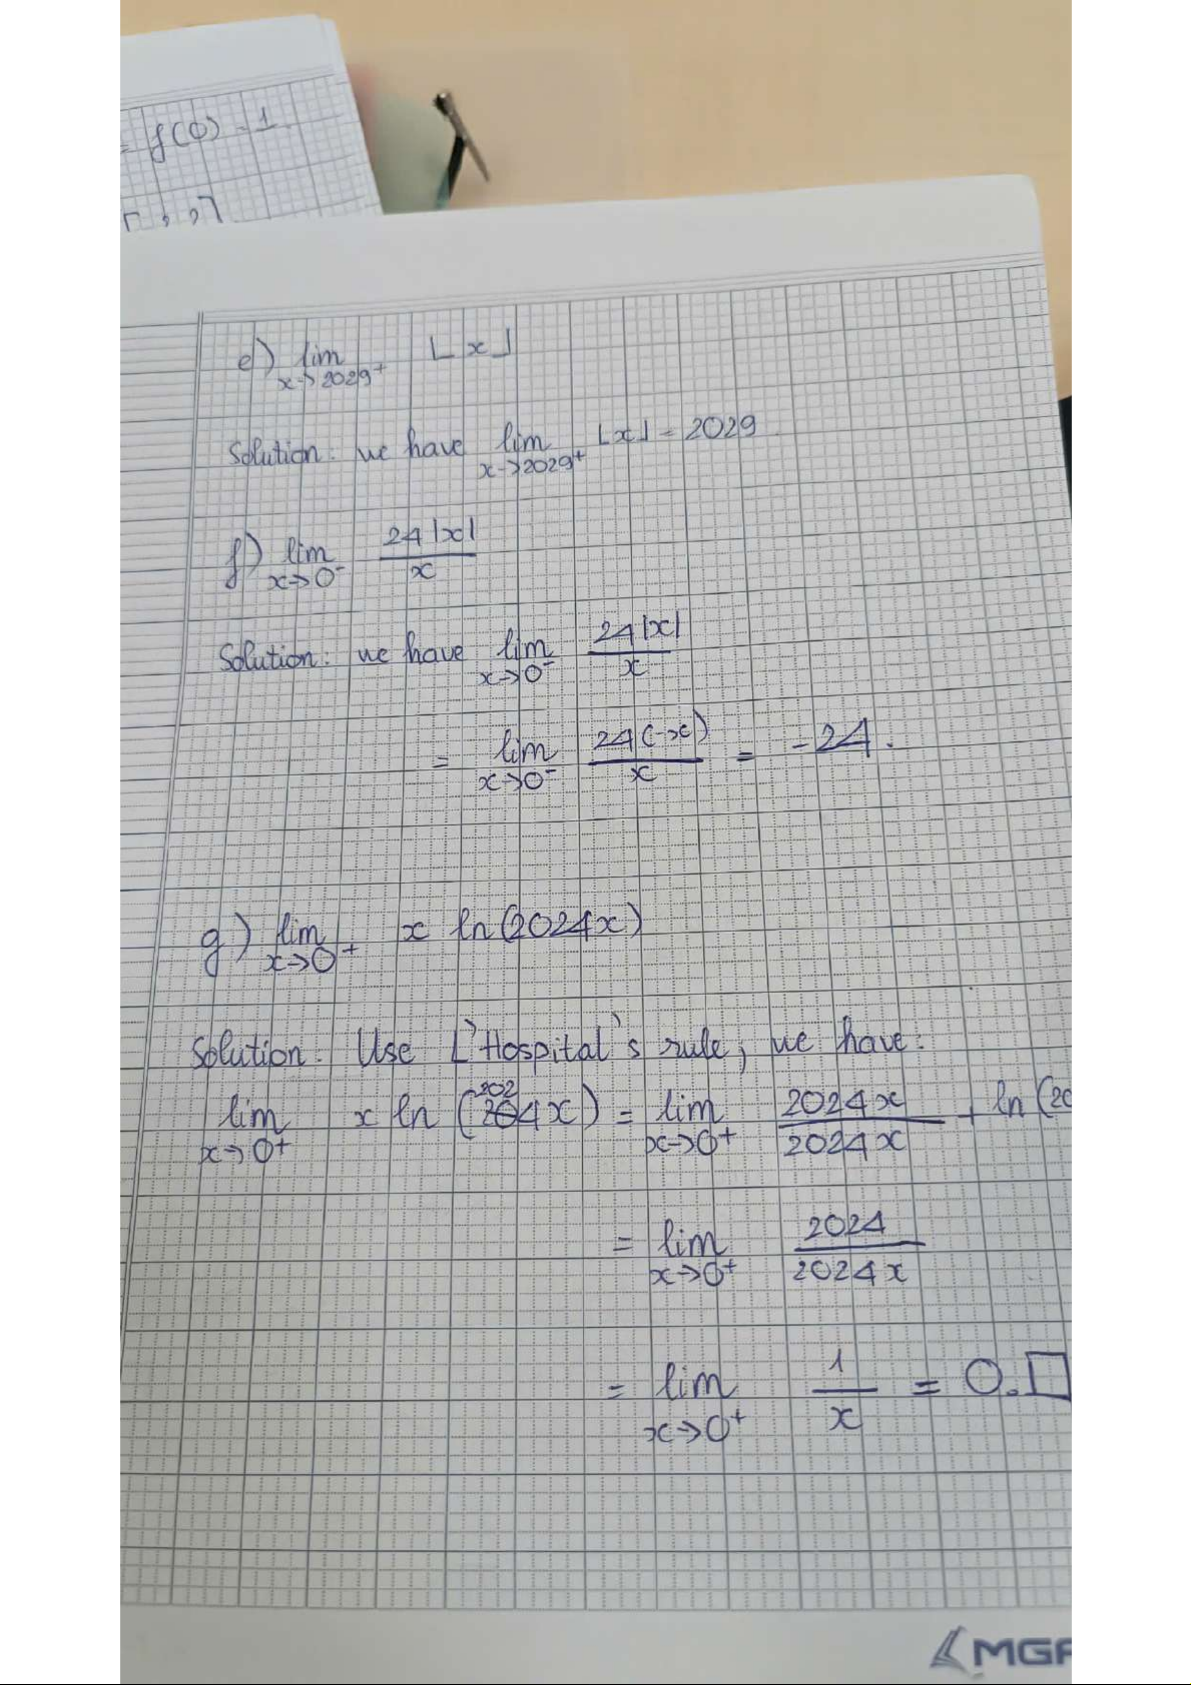 = f(0) = 1.
e) lim x→2029⁺ ⌊x⌋
Solution: we have lim x→2029⁺ ⌊x⌋ = 2029
f) lim x→0⁻ 24|x| / x
Solution: we have lim x→0⁻ 24|x| / x
= lim x→0⁻ 24(-x) / x = -24.
g) lim x→0⁺ x ln(2024x)
Solution. Use L'Hospital's rule, we have:
lim x→0⁺ x ln(2024x) = lim x→0⁺ 2024x / 2024x + ln(20
= lim x→0⁺ 2024 / 2024x
= lim x→0⁺ 1 / x = 0.□
MGP